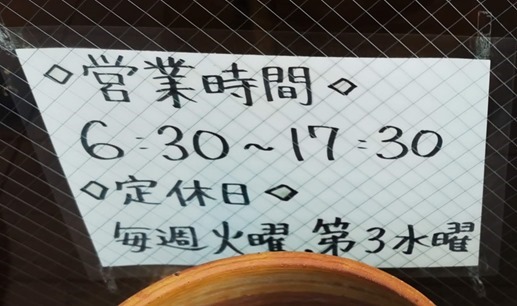 ◇営業時間◇
6:30～17:30
◇定休日◇
毎週火曜、第3水曜